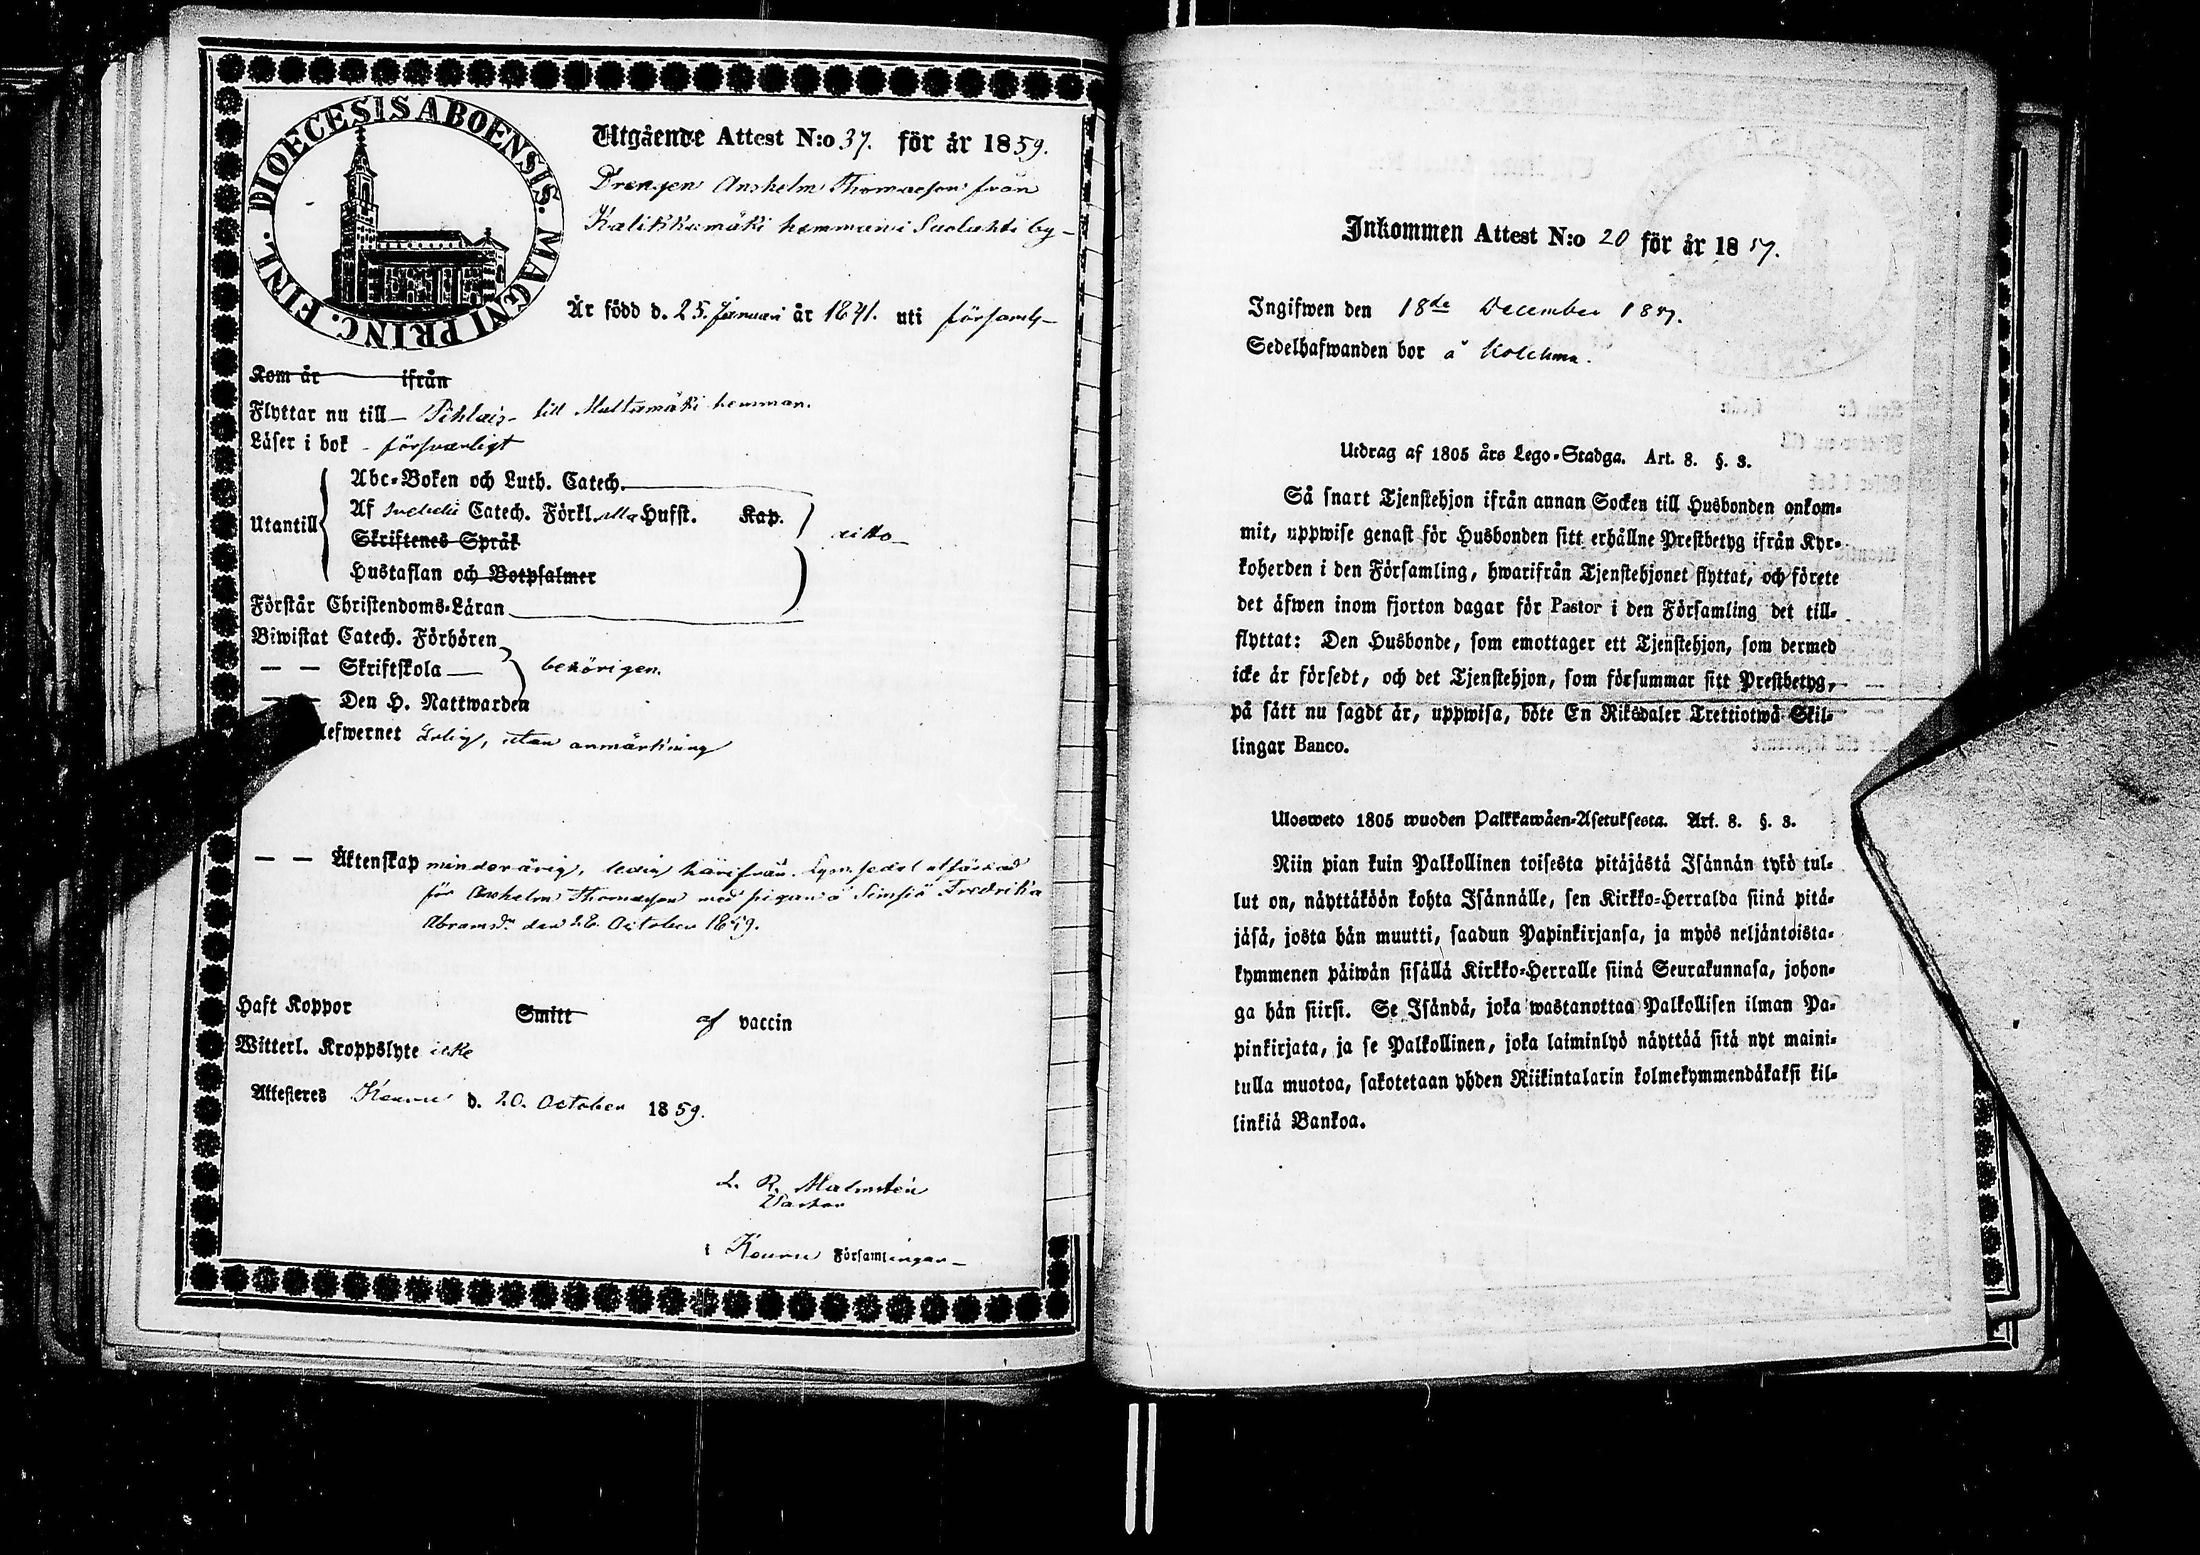 DIOECESIS ABOENSIS. MAGNI PRINC. FINL.
Utgående Attest N:o 37. för år 1859.
Drengen Anshelm Thomasson från
Kalikkamäki hemman i Suolahti by
Är född d. 25. Januari år 1841. uti församl-
Kom år ifrån
Flyttar nu till Pihlais- till Multamäki hemman.
Läser i bok - försvarligt
Utantill
Abc-Boken och Luth. Catech.
Af Svebelii Catech. Förkl. alla Hufst. Kap.
Skriftenes Språk
ditto
Hustaflan och Botpsalmer
Förstår Christendoms-Läran
Biwistat Catech. Förhören
— — Skriftskola
behörigen.
— — Den H. Nattwarden
lefwernet ärlig, utan anmärkning
— — Äktenskap minderårig, ledig härifrån. Lysn. sedel utfärdad
för Anshelm Thomasson med pigan å Simsiö Fredrika
Abramsdr den 28. October 1859.
Haft Koppor Smitt af vaccin
Witterl. Kroppslyte icke
Attesteres Keuru d. 20. October 1859.
L. R. Malmstén
Pastor
i Keuru Församlingar
Inkommen Attest N:o 20 för år 1859.
Ingifwen den 18de December 1859.
Sedelhafwanden bor å
Utdrag af 1805 års Lego-Stadga. Art. 8. §. 3.
Så snart Tjenstehjon ifrån annan Socken till Husbonden ankom-
mit, uppwise genast för Husbonden sitt erhållne Prestbetyg ifrån Kyr-
koherden i den Församling, hwarifrån Tjenstehjonet flyttat, och förete
det äfwen inom fjorton dagar för Pastor i den Församling det till-
flyttat: Den Husbonde, som emottager ett Tjenstehjon, som dermed
icke är försedt, och det Tjenstehjon, som försummar sitt Prestbetyg,
på sätt nu sagdt är, uppwisa, böte En Riksdaler Trettiotwå Skil-
lingar Banco.
Ulosweto 1805 wuoden Palkkawäen-Asetuksesta. Art. 8. §. 3.
Niin pian kuin Palkollinen toisesta pitäjästä Isännän tykö tul-
lut on, näyttäköön kohta Isännälle, sen Kirkko-Herralda siinä pitä-
jäsä, josta hän muutti, saadun Papinkirjansa, ja myös neljäntoista-
kymmenen päiwän sisällä Kirkko-Herralle siinä Seurakunnasa, johon-
ga hän siirsi. Se Isändä, joka wastanottaa Palkollisen ilman Pa-
pinkirjata, ja se Palkollinen, joka laiminlyö näyttää sitä nyt maini-
tulla muotoa, sakotetaan yhden Riikintalarin kolmekymmendäkaksi kil-
linkiä Bankoa.